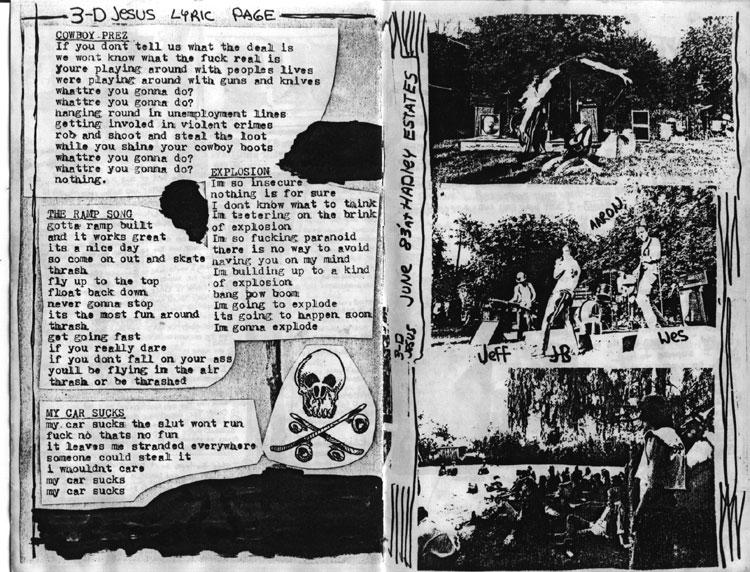 3-D JESUS LYRIC PAGE
COWBOY PREZ
If you dont tell us what the deal is
we wont know what the fuck real is
youre playing around with peoples lives
were playing around with guns and knives
whattre you gonna do?
whattre you gonna do?
hanging round in unemployment lines
getting involed in violent crimes
rob and shoot and steal the loot
while you shine your cowboy boots
whattre you gonna do?
whattre you gonna do?
nothing.
EXPLOSION
Im so insecure
nothing is for sure
I dont know what to think
Im teetering on the brink
of explosion
Im so fucking paranoid
there is no way to avoid
having you on my mind
Im building up to a kind
of explosion
bang pow boom
Im going to explode
its going to happen soon
Im gonna explode
THE RAMP SONG
gotta ramp built
and it works great
its a nice day
so come on out and skate
thrash
fly up to the top
float back down
never gonna stop
its the most fun around
thrash
get going fast
if you really dare
if you dont fall on your ass
youll be flying in the air
thrash or be thrashed
MY CAR SUCKS
my car sucks the slut wont run
fuck no thats no fun
it leaves me stranded everywhere
someone could steal it
i whouldnt care
my car sucks
my car sucks
3-D JESUS JUNE 83 AT HADLEY ESTATES
ARRON
Jeff
JB
Wes